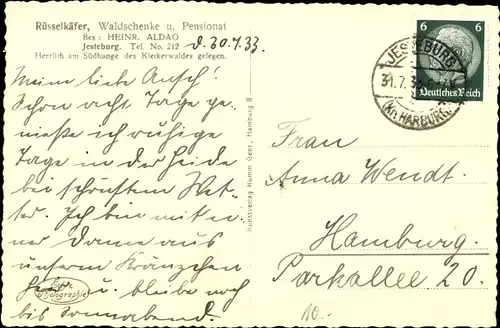 Rüsselkäfer, Waldschenke u. Pensionat
Bes: HEINR. ALDAG
Jesteburg. Tel. No. 212
Herrlich am Südhange des Kleckerwaldes gelegen.
d. 30.7.33.
Meine liebe
Schon acht Tage ge-
nieße ich ruhige
Tage in der Heide
bei schönstem Wet-
ter. Ich bin mit ei-
ner Dame aus
unserm Kränzchen
hier u. bleibe noch
bis Sonnabend.
Echte Photographie
Kunstverlag Humm Gebr., Hamburg 8
6 6
Deutsches Reich
JESTEBURG
31.7.33
(Kr. HARBURG)
Frau
Anna Wendt.
Hamburg.
Parkallee 20.
10.-